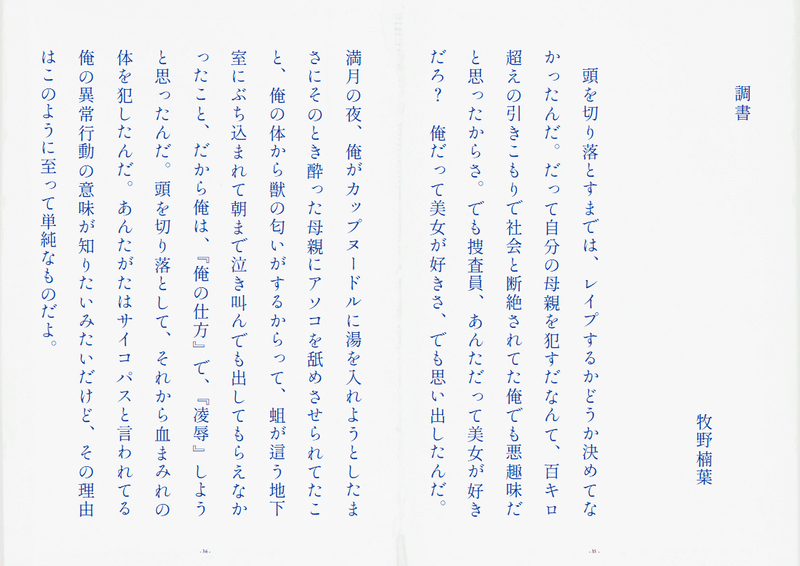 調書
牧野楠葉
頭を切り落とすまでは、レイプするかどうか決めてな
かったんだ。だって自分の母親を犯すだなんて、百キロ
超えの引きこもりで社会と断絶されてた俺でも悪趣味だ
と思ったからさ。でも捜査員、あんただって美女が好き
だろ？　俺だって美女が好きさ、でも思い出したんだ。
- 35 -
満月の夜、俺がカップヌードルに湯を入れようとしたま
さにそのとき酔った母親にアソコを舐めさせられてたこ
と、俺の体から獣の匂いがするからって、蛆が這う地下
室にぶち込まれて朝まで泣き叫んでも出してもらえなか
ったこと、だから俺は、『俺の仕方』で、『凌辱』しよう
と思ったんだ。頭を切り落として、それから血まみれの
体を犯したんだ。あんたがたはサイコパスと言われてる
俺の異常行動の意味が知りたいみたいだけど、その理由
はこのように至って単純なものだよ。
- 36 -